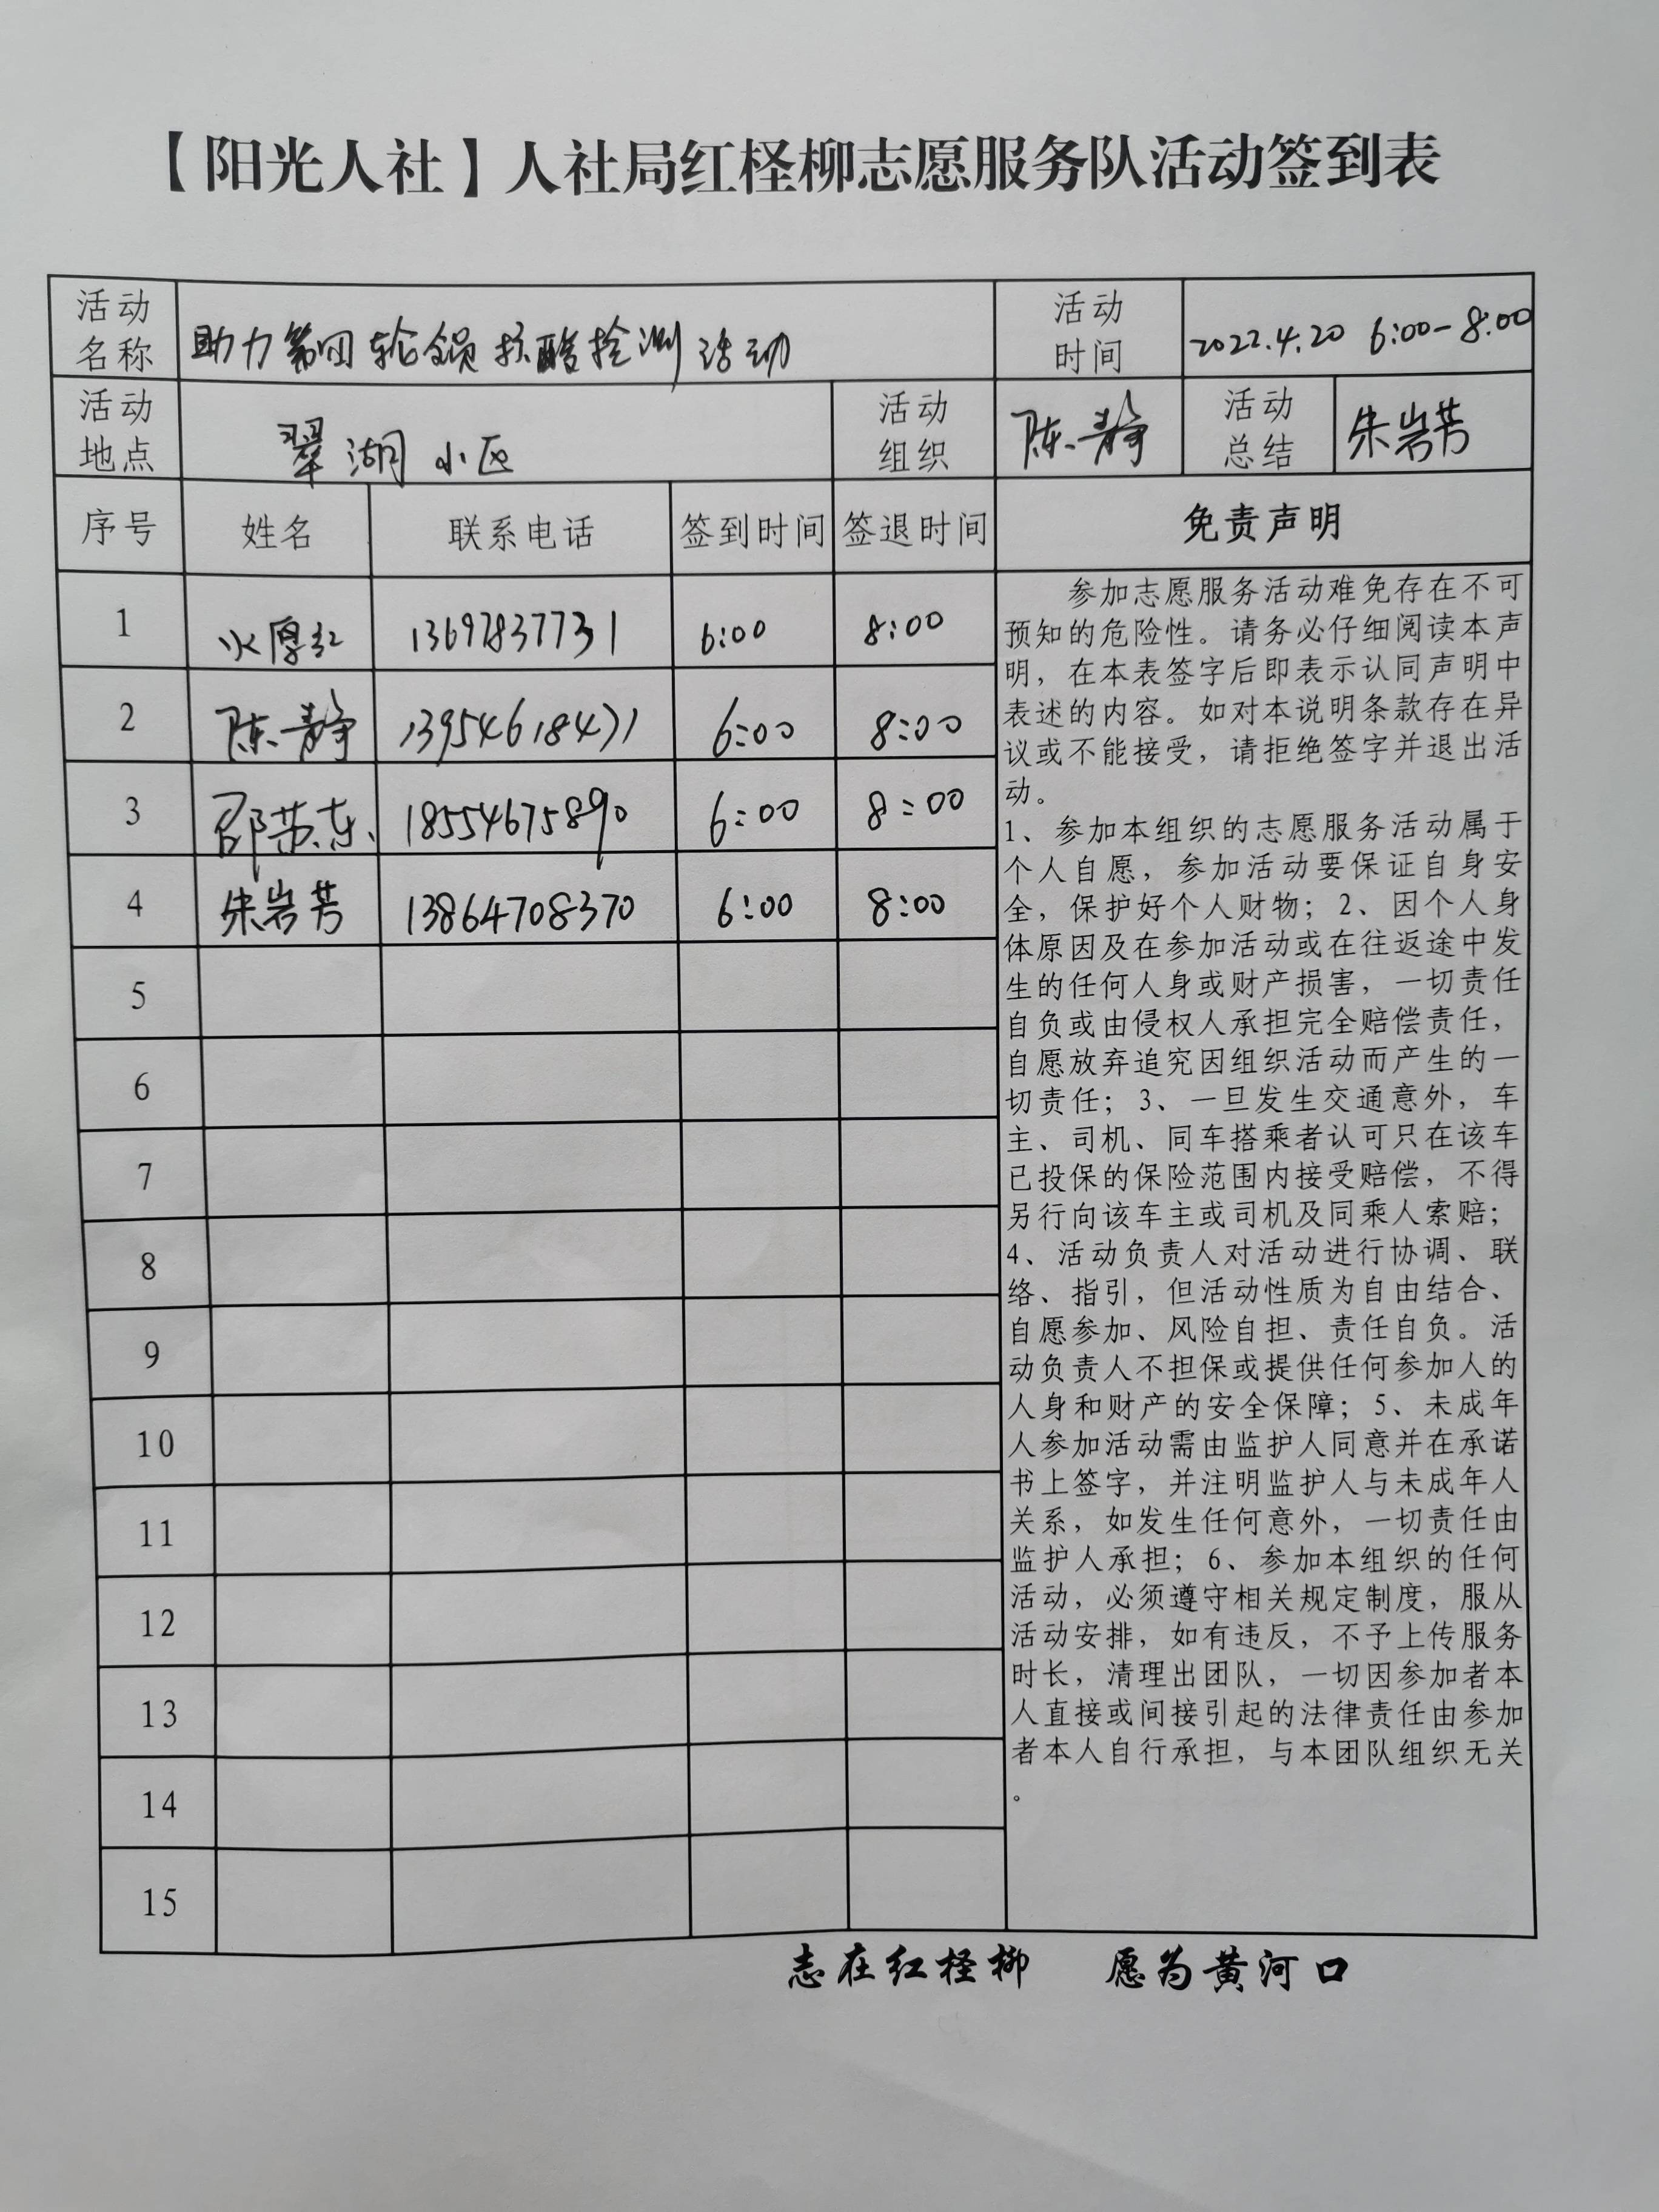 【阳光人社】人社局红柽柳志愿服务队活动签到表
活动名称 助力第四轮全员核酸检测活动 活动时间 2022.4.20 6:00-8:00
活动地点 翠湖小区 活动组织 陈静 活动总结 朱岩芳
序号 姓名 联系电话 签到时间 签退时间 免责声明
1 13697837731 6:00 8:00
2 陈静 13954618471 6:00 8:00
3 邵苏东 18554675890 6:00 8:00
4 朱岩芳 13864708370 6:00 8:00
5
6
7
8
9
10
11
12
13
14
15
参加志愿服务活动难免存在不可
预知的危险性。请务必仔细阅读本声
明，在本表签字后即表示认同声明中
表述的内容。如对本说明条款存在异
议或不能接受，请拒绝签字并退出活
动。
1、参加本组织的志愿服务活动属于
个人自愿，参加活动要保证自身安
全，保护好个人财物；2、因个人身
体原因及在参加活动或在往返途中发
生的任何人身或财产损害，一切责任
自负或由侵权人承担完全赔偿责任，
自愿放弃追究因组织活动而产生的一
切责任；3、一旦发生交通意外，车
主、司机、同车搭乘者认可只在该车
已投保的保险范围内接受赔偿，不得
另行向该车主或司机及同乘人索赔；
4、活动负责人对活动进行协调、联
络、指引，但活动性质为自由结合、
自愿参加、风险自担、责任自负。活
动负责人不担保或提供任何参加人的
人身和财产的安全保障；5、未成年
人参加活动需由监护人同意并在承诺
书上签字，并注明监护人与未成年人
关系，如发生任何意外，一切责任由
监护人承担；6、参加本组织的任何
活动，必须遵守相关规定制度，服从
活动安排，如有违反，不予上传服务
时长，清理出团队，一切因参加者本
人直接或间接引起的法律责任由参加
者本人自行承担，与本团队组织无关
。
志在红柽柳 愿为黄河口